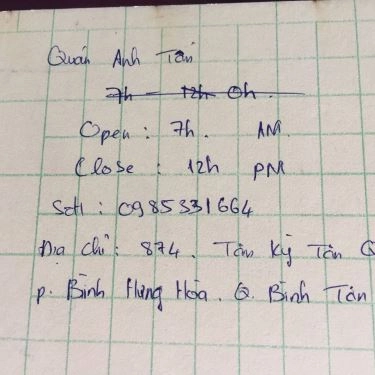 Quán Anh Tấn
7h 12h 0h.
Open : 7h. AM.
Close : 12h PM
Sđt : 0985331664
Địa chỉ : 874. Tân Kỳ Tân Q
P. Bình Hưng Hòa. Q. Bình Tân